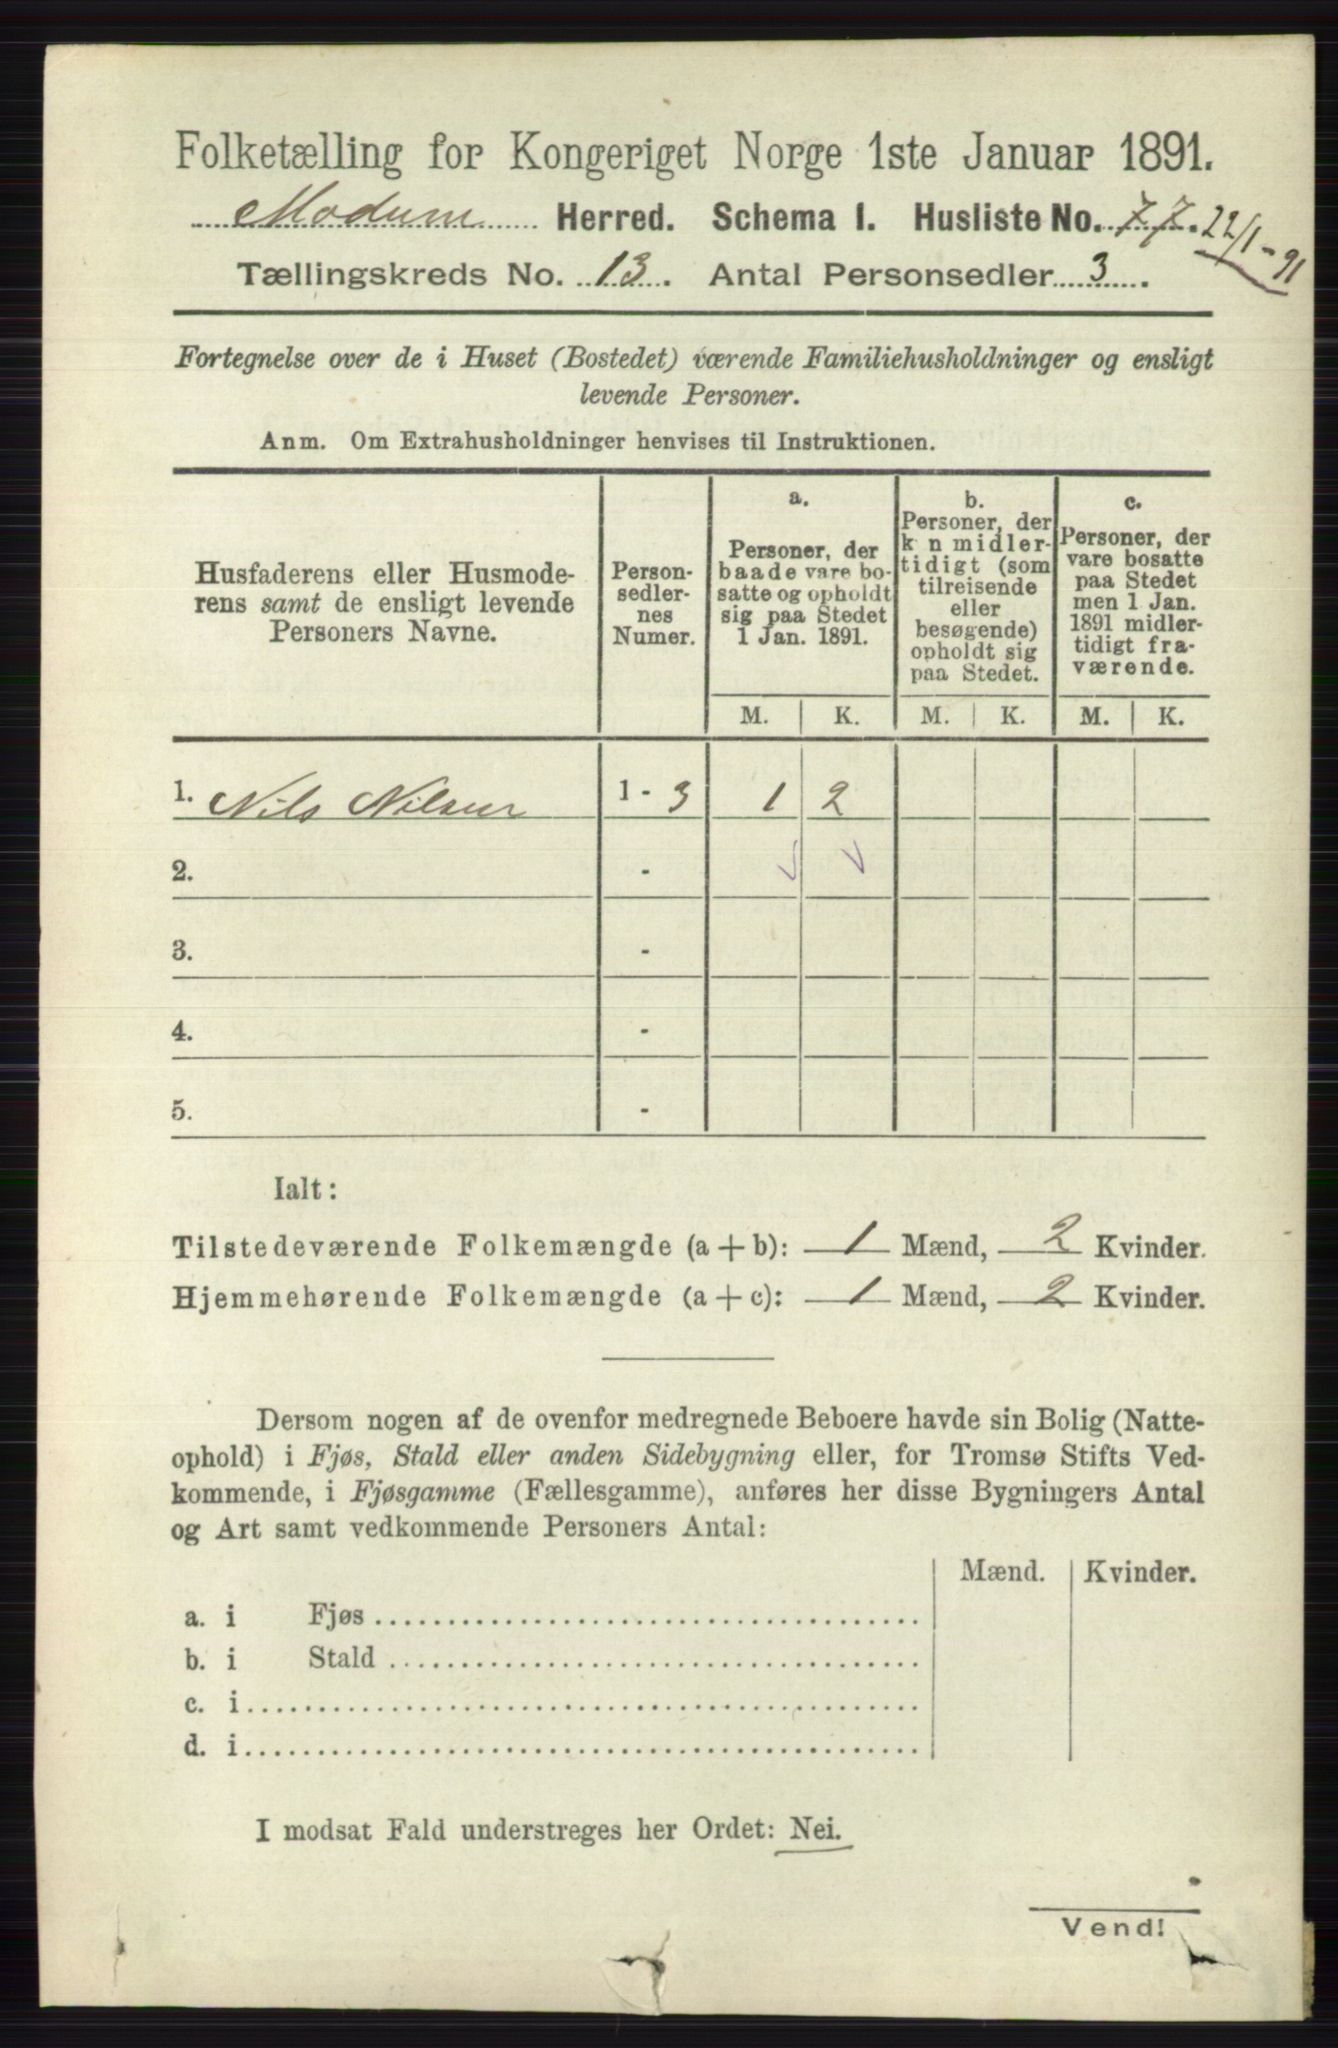 Folketælling for Kongeriget Norge 1ste Januar 1891.
Modum Herred. Schema I. Husliste No. 77. 22/1-91
Tællingskreds No. 13. Antal Personsedler 3.
Fortegnelse over de i Huset (Bostedet) værende Familiehusholdninger og ensligt
levende Personer.
Anm. Om Extrahusholdninger henvises til Instruktionen.
Husfaderens eller Husmode-
rens samt de ensligt levende
Personers Navne.
Person-
sedler-
nes
Numer.
a.
Personer, der
baade vare bo-
satte og opholdt
sig paa Stedet
1 Jan. 1891.
b.
Personer, der
k n midler-
tidigt (som
tilreisende
eller
besøgende)
opholdt sig
paa Stedet.
c.
Personer, der
vare bosatte
paa Stedet
men 1 Jan.
1891 midler-
tidigt fra-
værende.
M. K. M. K. M. K.
1. Nils Nilsen 1 - 3 1 2
2. -
3. -
4. -
5. -
Ialt:
Tilstedeværende Folkemængde (a + b): 1 Mænd, 2 Kvinder.
Hjemmehørende Folkemængde (a + c): 1 Mænd, 2 Kvinder.
Dersom nogen af de ovenfor medregnede Beboere havde sin Bolig (Natte-
ophold) i Fjøs, Stald eller anden Sidebygning eller, for Tromsø Stifts Ved-
kommende, i Fjøsgamme (Fællesgamme), anføres her disse Bygningers Antal
og Art samt vedkommende Personers Antal:
Mænd. Kvinder.
a. i Fjøs
b. i Stald
c. i
d. i
I modsat Fald understreges her Ordet: Nei.
Vend!